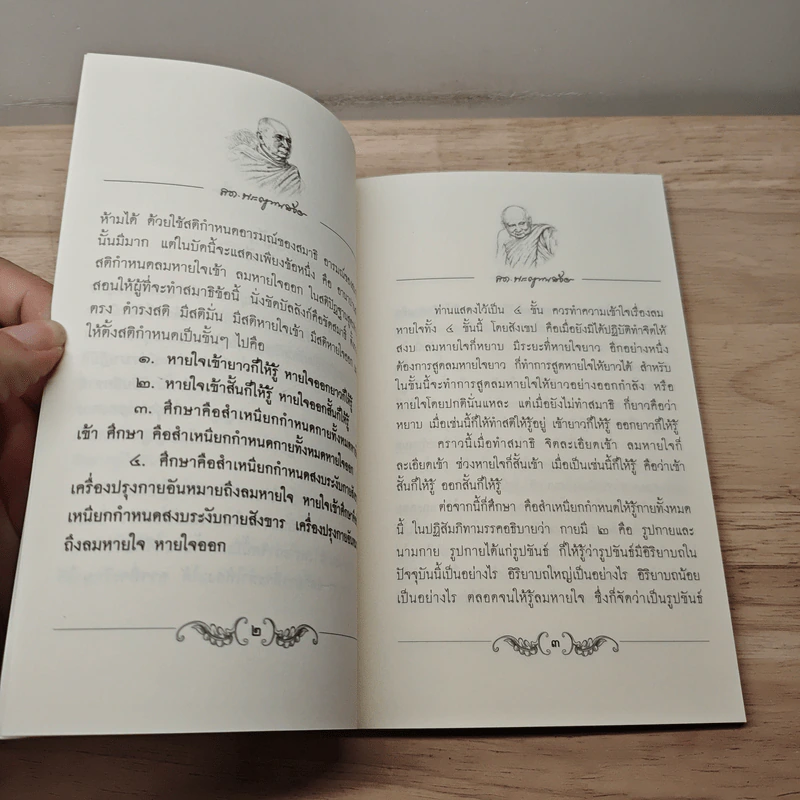 ห้ามได้ ด้วยใช้สติกำหนดอารมณ์ของสมาธิ
นั้นมีมาก แต่ในบัดนี้จะแสดงเพียงข้อหนึ่ง คือ
สติกำหนดลมหายใจเข้า ลมหายใจออก ในสติปัฏฐาน
สอนให้ผู้ที่จะทำสมาธิข้อนี้ นั่งขัดบัลลังก์คือขัดสมาธิ
ตรง ดำรงสติ มีสติมั่น มีสติหายใจเข้า มีสติหายใจออก
ให้ตั้งสติกำหนดเป็นขั้นๆ ไปคือ
๑. หายใจเข้ายาวก็ให้รู้ หายใจออกยาวก็ให้รู้
๒. หายใจเข้าสั้นก็ให้รู้ หายใจออกสั้นก็ให้รู้
๓. ศึกษาคือสำเหนียกกำหนดกายทั้งหมด
เข้า ศึกษา คือสำเหนียกกำหนดกายทั้งหมดหายใจออก
๔. ศึกษาคือสำเหนียกกำหนดสงบระงับกาย
เครื่องปรุงกายอันหมายถึงลมหายใจ หายใจเข้า
เหนียกกำหนดสงบระงับกายสังขาร เครื่องปรุงกายอัน
ถึงลมหายใจ หายใจออก
๒
ท่านแสดงไว้เป็น ๔ ชั้น ควรทำความเข้าใจเรื่องลม
หายใจทั้ง ๔ ชั้นนี้ โดยสังเขป คือเมื่อยังมิได้ปฏิบัติทำจิตให้
สงบ ลมหายใจก็หยาบ มีระยะที่หายใจยาว อีกอย่างหนึ่ง
ต้องการสูดลมหายใจยาว ก็ทำการสูดหายใจให้ยาวได้ สำหรับ
ในชั้นนี้จะทำการสูดลมหายใจให้ยาวอย่างออกกำลัง หรือ
หายใจโดยปกตินั่นแหละ แต่เมื่อยังไม่ทำสมาธิ ก็ยาวคือว่า
หยาบ เมื่อเช่นนี้ก็ให้ทำสติให้รู้อยู่ เข้ายาวก็ให้รู้ ออกยาวก็ให้รู้
คราวนี้เมื่อทำสมาธิ จิตละเอียดเข้า ลมหายใจก็
ละเอียดเข้า ช่วงหายใจก็สั้นเข้า เมื่อเป็นเช่นนี้ก็ให้รู้ คือว่าเข้า
สั้นก็ให้รู้ ออกสั้นก็ให้รู้
ต่อจากนี้ก็ศึกษา คือสำเหนียกกำหนดให้รู้กายทั้งหมด
นี้ ในปฏิสัมภิทามรรคอธิบายว่า กายมี ๒ คือ รูปกายและ
นามกาย รูปกายได้แก่รูปขันธ์ ก็ให้รู้ว่ารูปขันธ์มีอิริยาบถใน
ปัจจุบันนี้เป็นอย่างไร อิริยาบถใหญ่เป็นอย่างไร อิริยาบถน้อย
เป็นอย่างไร ตลอดจนให้รู้ลมหายใจ ซึ่งก็จัดว่าเป็นรูปขันธ์
๓